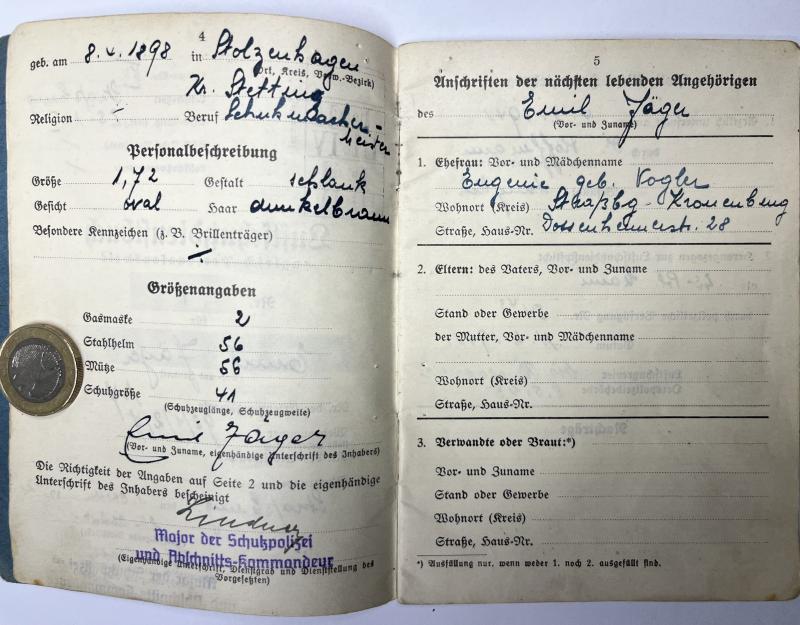 4
geb. am 8. V. 1898 in Stolzenhagen
(Ort, Kreis, Verw.-Bezirk)
Kr. Stettin
Religion ·/· Beruf Schuhmacher-
meister
Personalbeschreibung
Größe 1,72 Gestalt schlank
Gesicht oval Haar dunkelbraun
Besondere Kennzeichen (z. B. Brillenträger)
·/·
Größenangaben
Gasmaske 2
Stahlhelm 56
Mütze 56
Schuhgröße 41
(Schuhzeuglänge, Schuhzeugweite)
Emil Jäger
(Vor- und Zuname, eigenhändige Unterschrift des Inhabers)
Die Richtigkeit der Angaben auf Seite 2 und die eigenhändige
Unterschrift des Inhabers bescheinigt
Major der Schutzpolizei
und Abschnitts-Kommandeur
(Eigenhändige Unterschrift, Dienstgrad und Dienststellung des
Vorgesetzten)
5
Anschriften der nächsten lebenden Angehörigen
des Emil Jäger
(Vor- und Zuname)
1. Ehefrau: Vor- und Mädchenname
Eugenie geb. Vogler
Wohnort (Kreis) Straßbg-Kronenburg
Straße, Haus-Nr. Dossenheimerstr. 28
2. Eltern: des Vaters, Vor- und Zuname
Stand oder Gewerbe
der Mutter, Vor- und Mädchenname
Wohnort (Kreis)
Straße, Haus-Nr.
3. Verwandte oder Braut:*)
Vor- und Zuname
Stand oder Gewerbe
Wohnort (Kreis)
Straße, Haus-Nr.
*) Ausfüllung nur, wenn weder 1. noch 2. ausgefüllt sind.